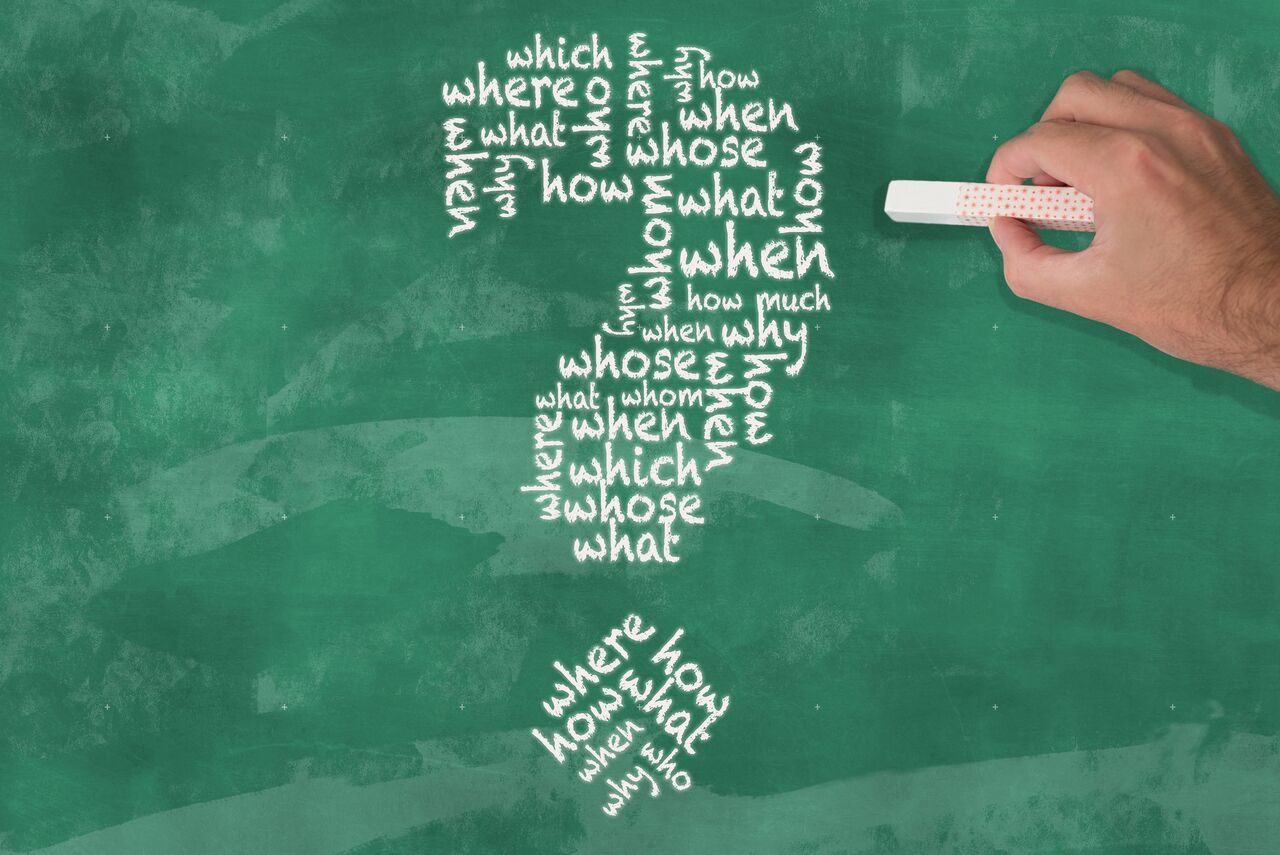 which
where
why
how
where
who
when
what
whose
when
why
how
whom
what
how
when
how much
why
when
why
whose
when
how
what
whom
when
where
which
whose
what
where
how
how
what
when
who
why